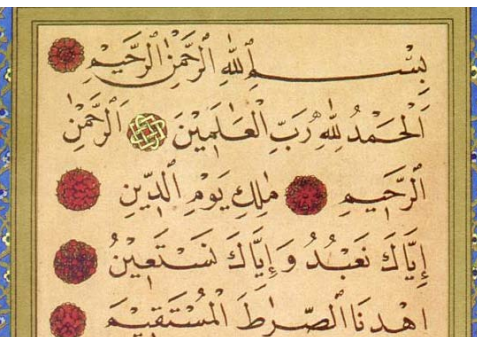 بِسْمِ اللّٰهِ الرَّحْمٰنِ الرَّحِيمِ
اَلْحَمْدُ لِلّٰهِ رَبِّ الْعَالَمِينَ اَلرَّحْمٰنِ
الرَّحِيمِ مٰلِكِ يَوْمِ الدِّينِ
إِيَّاكَ نَعْبُدُ وَإِيَّاكَ نَسْتَعِينُ
اِهْدِنَا الصِّرٰطَ الْمُسْتَقِيمَ